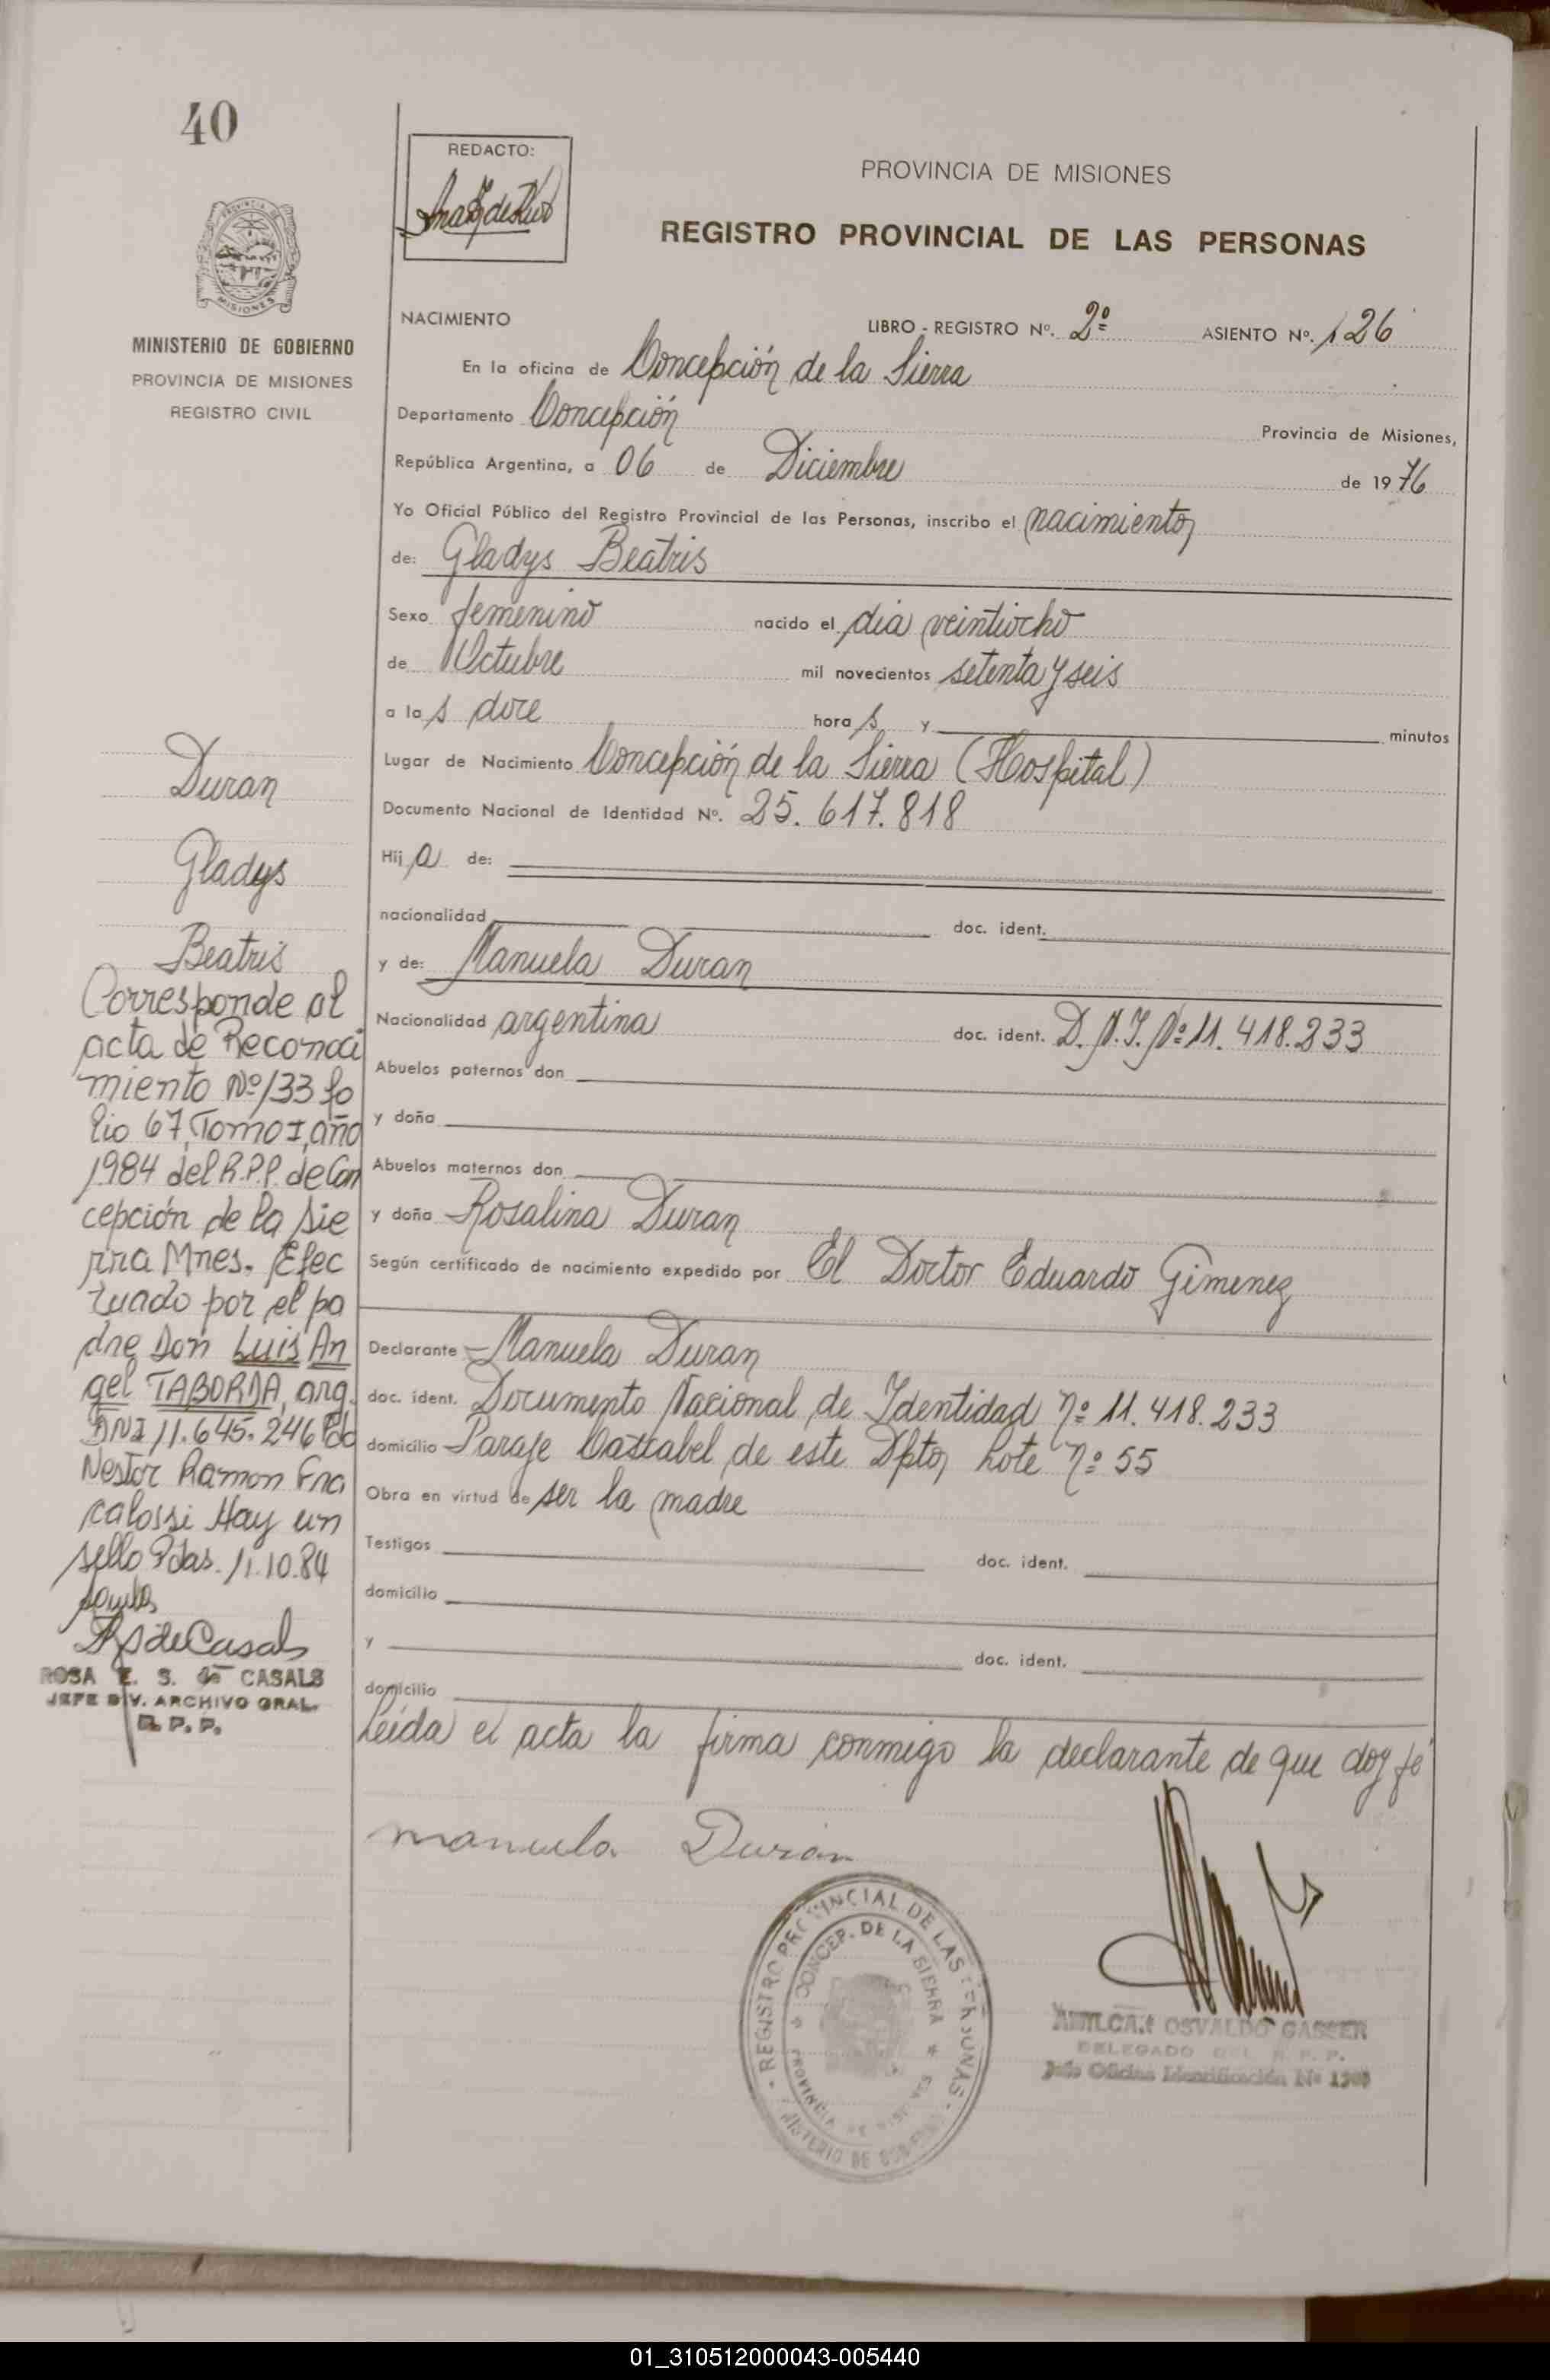 40
REDACTO:
PROVINCIA DE MISIONES
REGISTRO PROVINCIAL DE LAS PERSONAS
PROVINCIA DE
MISIONES
MINISTERIO DE GOBIERNO
PROVINCIA DE MISIONES
REGISTRO CIVIL
NACIMIENTO LIBRO - REGISTRO Nº. 2º ASIENTO Nº. 126
En la oficina de Concepción de la Sierra
Departamento Concepción Provincia de Misiones,
República Argentina, a 06 de Diciembre de 1976
Yo Oficial Público del Registro Provincial de las Personas, inscribo el nacimiento
de: Gladys Beatris
Sexo femenino nacido el dia veintiocho
de Octubre mil novecientos setenta y seis
a las doce horas y minutos
Lugar de Nacimiento Concepción de la Sierra (Hospital)
Documento Nacional de Identidad Nº. 25.617.818
Hija de:
nacionalidad doc. ident.
y de: Manuela Duran
Nacionalidad argentina doc. ident. D.N.I. Nº 11.418.233
Abuelos paternos don
y doña
Abuelos maternos don
y doña Rosalina Duran
Según certificado de nacimiento expedido por El Doctor Eduardo Gimenez
Declarante Manuela Duran
doc. ident. Documento Nacional de Identidad nº 11.418.233
domicilio Paraje Cascabel de este Dpto, Lote nº 55
Obra en virtud de ser la madre
Testigos doc. ident.
domicilio
y doc. ident.
domicilio
Leída el acta la firma conmigo la declarante de que doy fé
Manuela Duran
Duran
Gladys
Beatris
Corresponde al
acta de Reconoci
miento Nº 133 fo
lio 67, Tomo I, año
1984 del R.P.P. de Con
cepción de la Sie
rra Mnes. Efec
tuado por el pa
dre Don Luis An
gel TABORDA, arg.
DNI 11.645.246 Fdo
Nestor Ramon
Hay un
sello Pdas. 11.10.84
ROSA E. S. de CASALS
JEFE DIV. ARCHIVO GRAL.
R. P. P.
REGISTRO PROVINCIAL DE LAS PERSONAS
CONCEP. DE LA SIERRA
PROVINCIA DE MISIONES
MINISTERIO DE GOBIERNO
AMILCAR OSVALDO GASSER
DELEGADO DEL R. P. P.
Jefe Oficina Identificación Nº
01_310512000043-005440